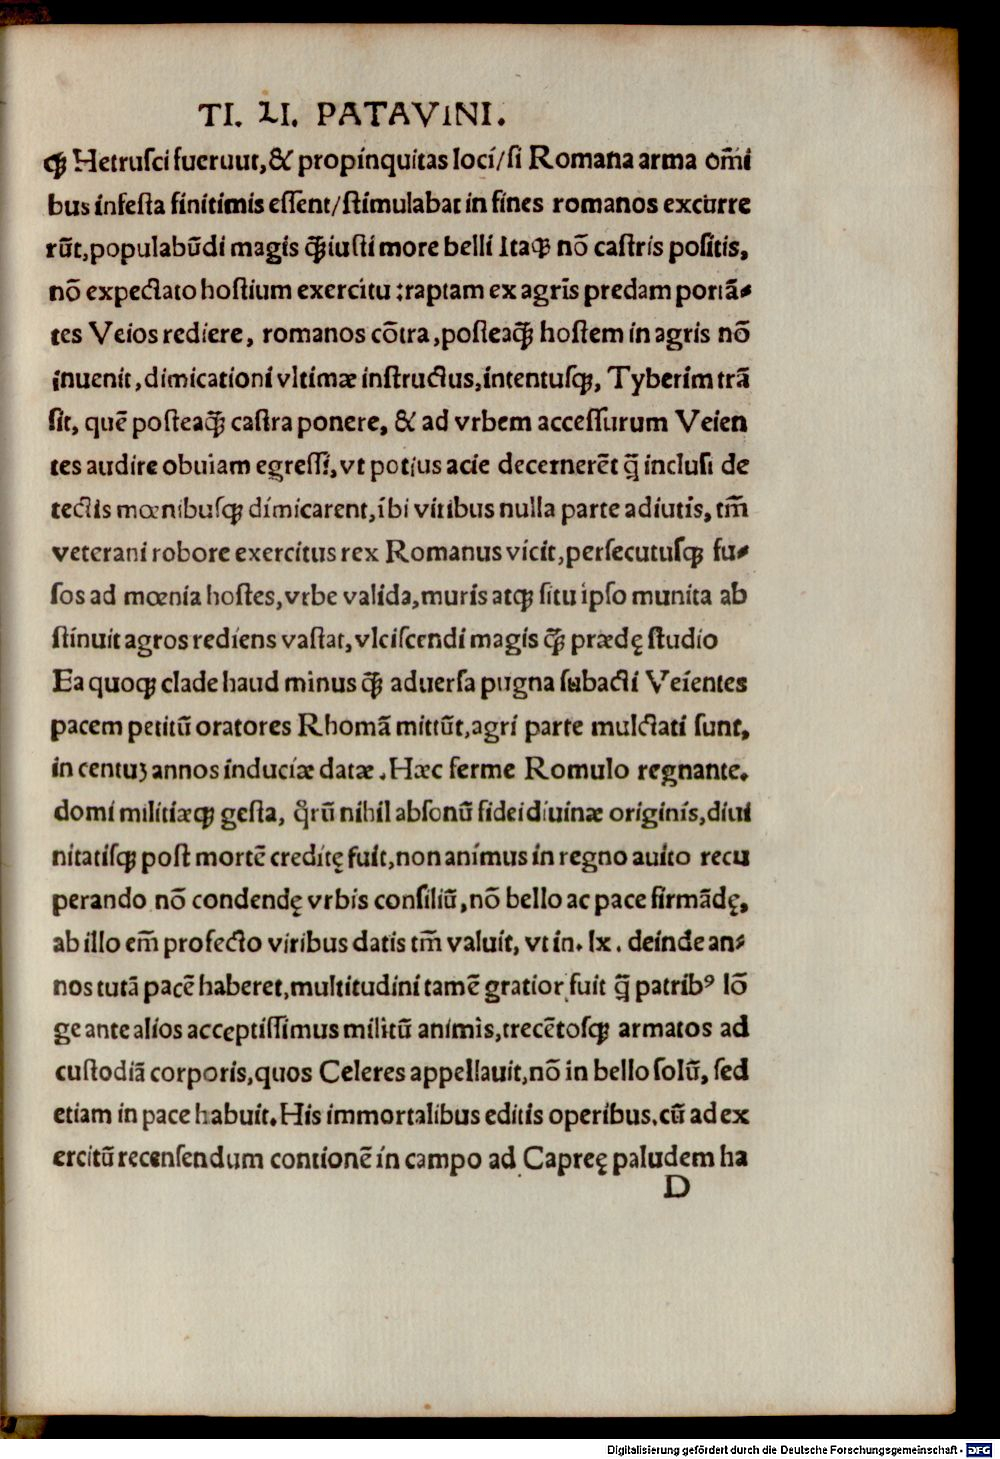 TI. LI. PATAVINI.
ꝙ Hetrusci fueruut,& propinquitas loci/si Romana arma om̄i
bus infesta finitimis essent/stimulabat in fines romanos excurre
rūt,populabūdi magis ꝙ̄ iusti more belli Itaqꝫ nō castris positis,
nō expectato hostium exercitu :raptam ex agris predam portā⸗
tes Veios rediere, romanos cōtra,posteaꝙ̄ hostem in agris nō
inuenit,dimicationi vltimæ instructus,intentusqꝫ, Tyberim trā
sit, quē posteaꝙ̄ castra ponere, & ad vrbem accessurum Veien
tes audire obuiam egressi,vt potius acie decernerēt q̄ inclusi de
tectis mœnibusqꝫ dimicarent,ibi viribus nulla parte adiutis, tm̄
veterani robore exercitus rex Romanus vicit,persecutusqꝫ fu⸗
sos ad mœnia hostes,vrbe valida,muris atqꝫ situ ipso munita ab
stinuit agros rediens vastat,vlciscendi magis ꝙ̄ prædę studio
Ea quoqꝫ clade haud minus ꝙ̄ aduersa pugna subacti Veientes
pacem petitū oratores Rhomā mittūt,agri parte mulctati sunt,
in centuꝫ annos induciæ datæ .Hæc ferme Romulo regnante.
domi militiæqꝫ gesta, qͦrū nihil absonū fidei diuinæ originis,diui
nitatisqꝫ post mortē creditę fuit,non animus in regno auito recu
perando nō condendę vrbis consiliū,nō bello ac pace firmādę,
ab illo em̄ profecto viribus datis tm̄ valuit, vt in. lx. deinde an⸗
nos tutā pacē haberet,multitudini tamē gratior fuit q̄ patribꝰ lō
ge ante alios acceptissimus militū animis,trecētosqꝫ armatos ad
custodiā corporis,quos Celeres appellauit,nō in bello solū, sed
etiam in pace habuit.His immortalibus editis operibus.cū ad ex
ercitū recensendum contionē in campo ad Capreę paludem ha
D
Digitalisierung gefördert durch die Deutsche Forschungsgemeinschaft - DFG